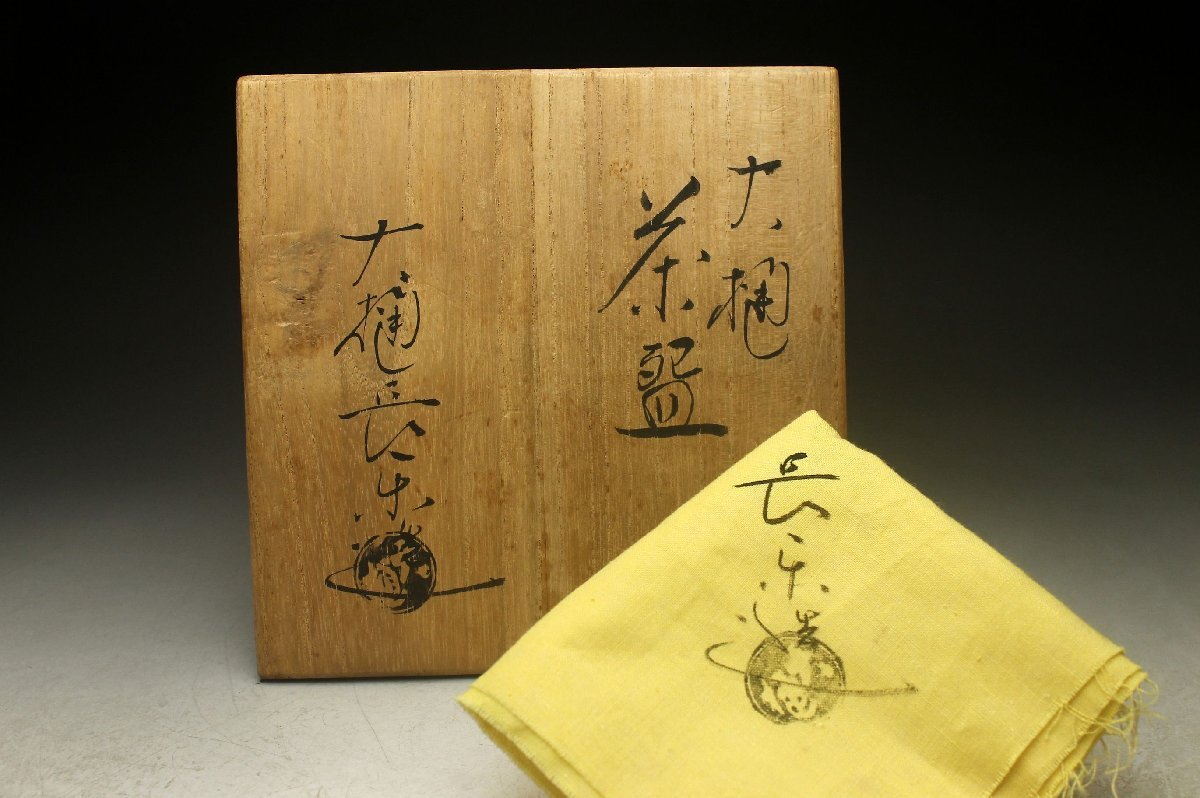 大樋
茶盌
大樋長楽造
長楽造